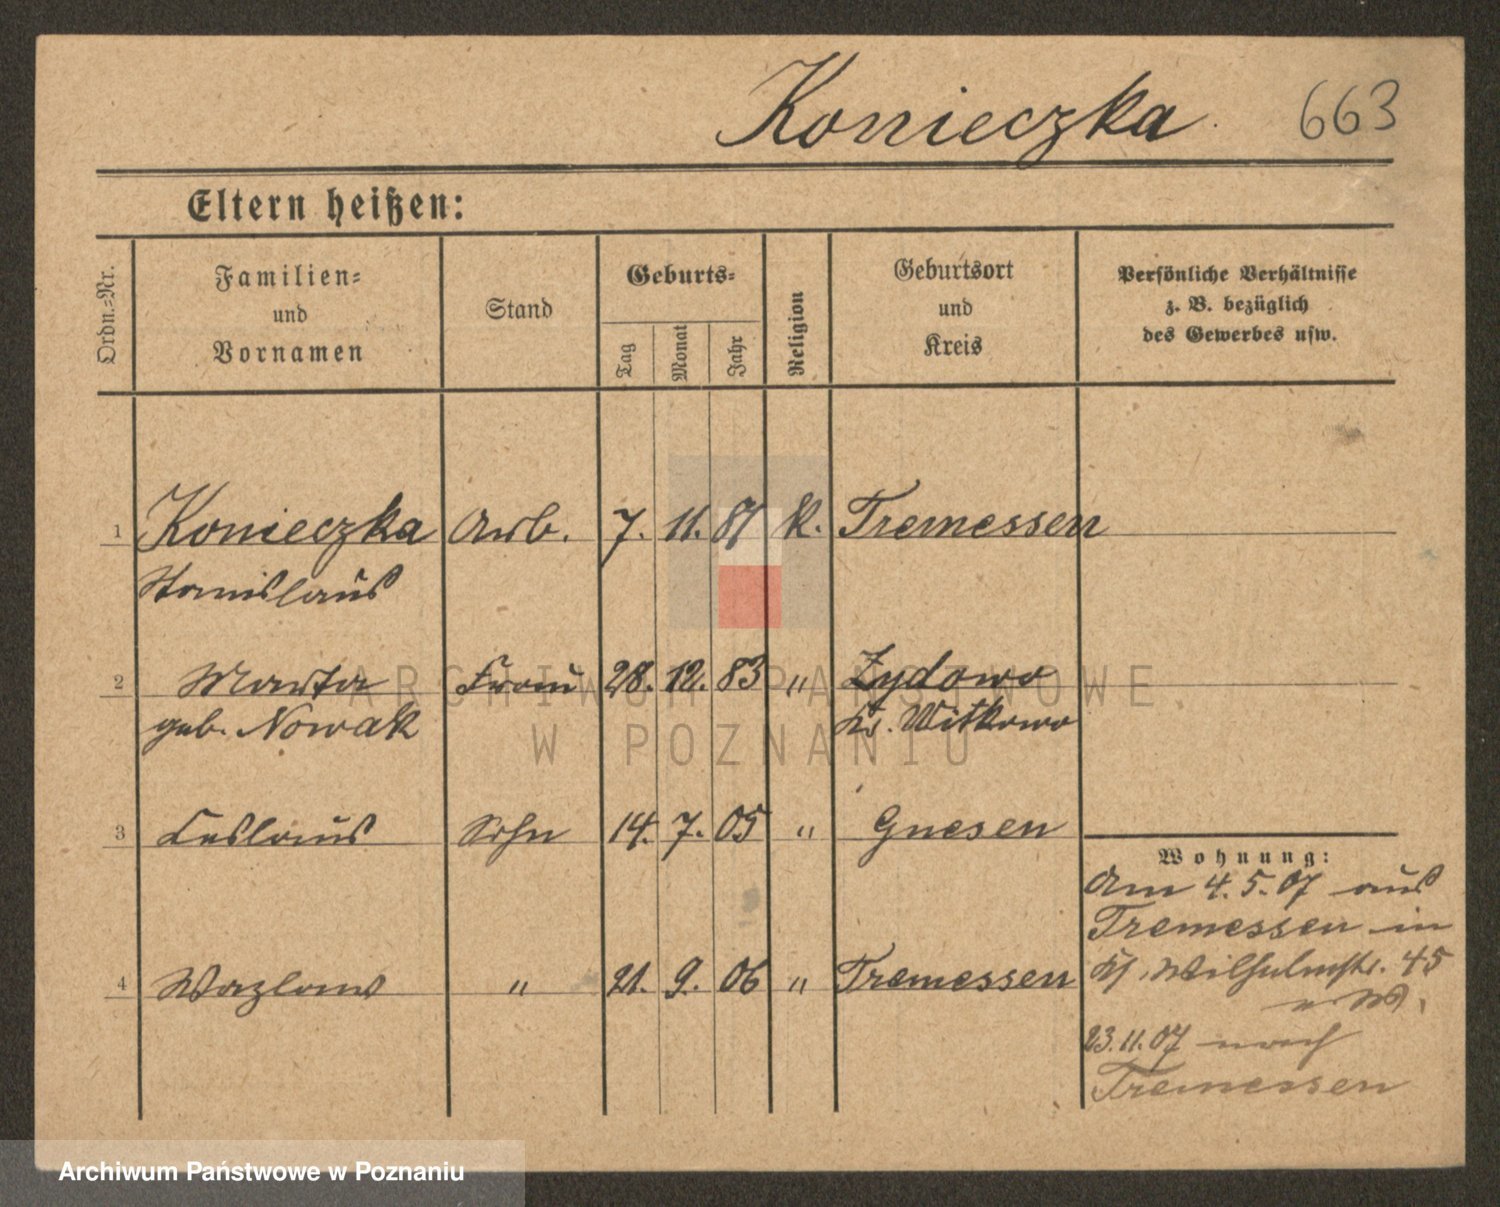 Konieczka 663
Eltern heißen:
Ordn.-Nr.
Familien-
und
Vornamen
Stand
Geburts-
Tag
Monat
Jahr
Religion
Geburtsort
und
Kreis
Persönliche Verhältnisse
z. B. bezüglich
des Gewerbes usw.
1 Konieczka Arb. 7. 11. 81 k. Tremessen
Stanislaus
2 Marta Frau 28. 12. 83 " Zydowo
geb. Nowak Kr. Witkowo
3 Ceslaus Sohn 14. 7. 05 " Gnesen
Wohnung:
Am 4.5.07 aus
Tremessen in
4 Wazlaw " 21. 9. 06 " Tremessen
Wilhelmstr. 45
23.11.07 nach
Tremessen
ARCHIWUM PAŃSTWOWE
W POZNANIU
Archiwum Państwowe w Poznaniu